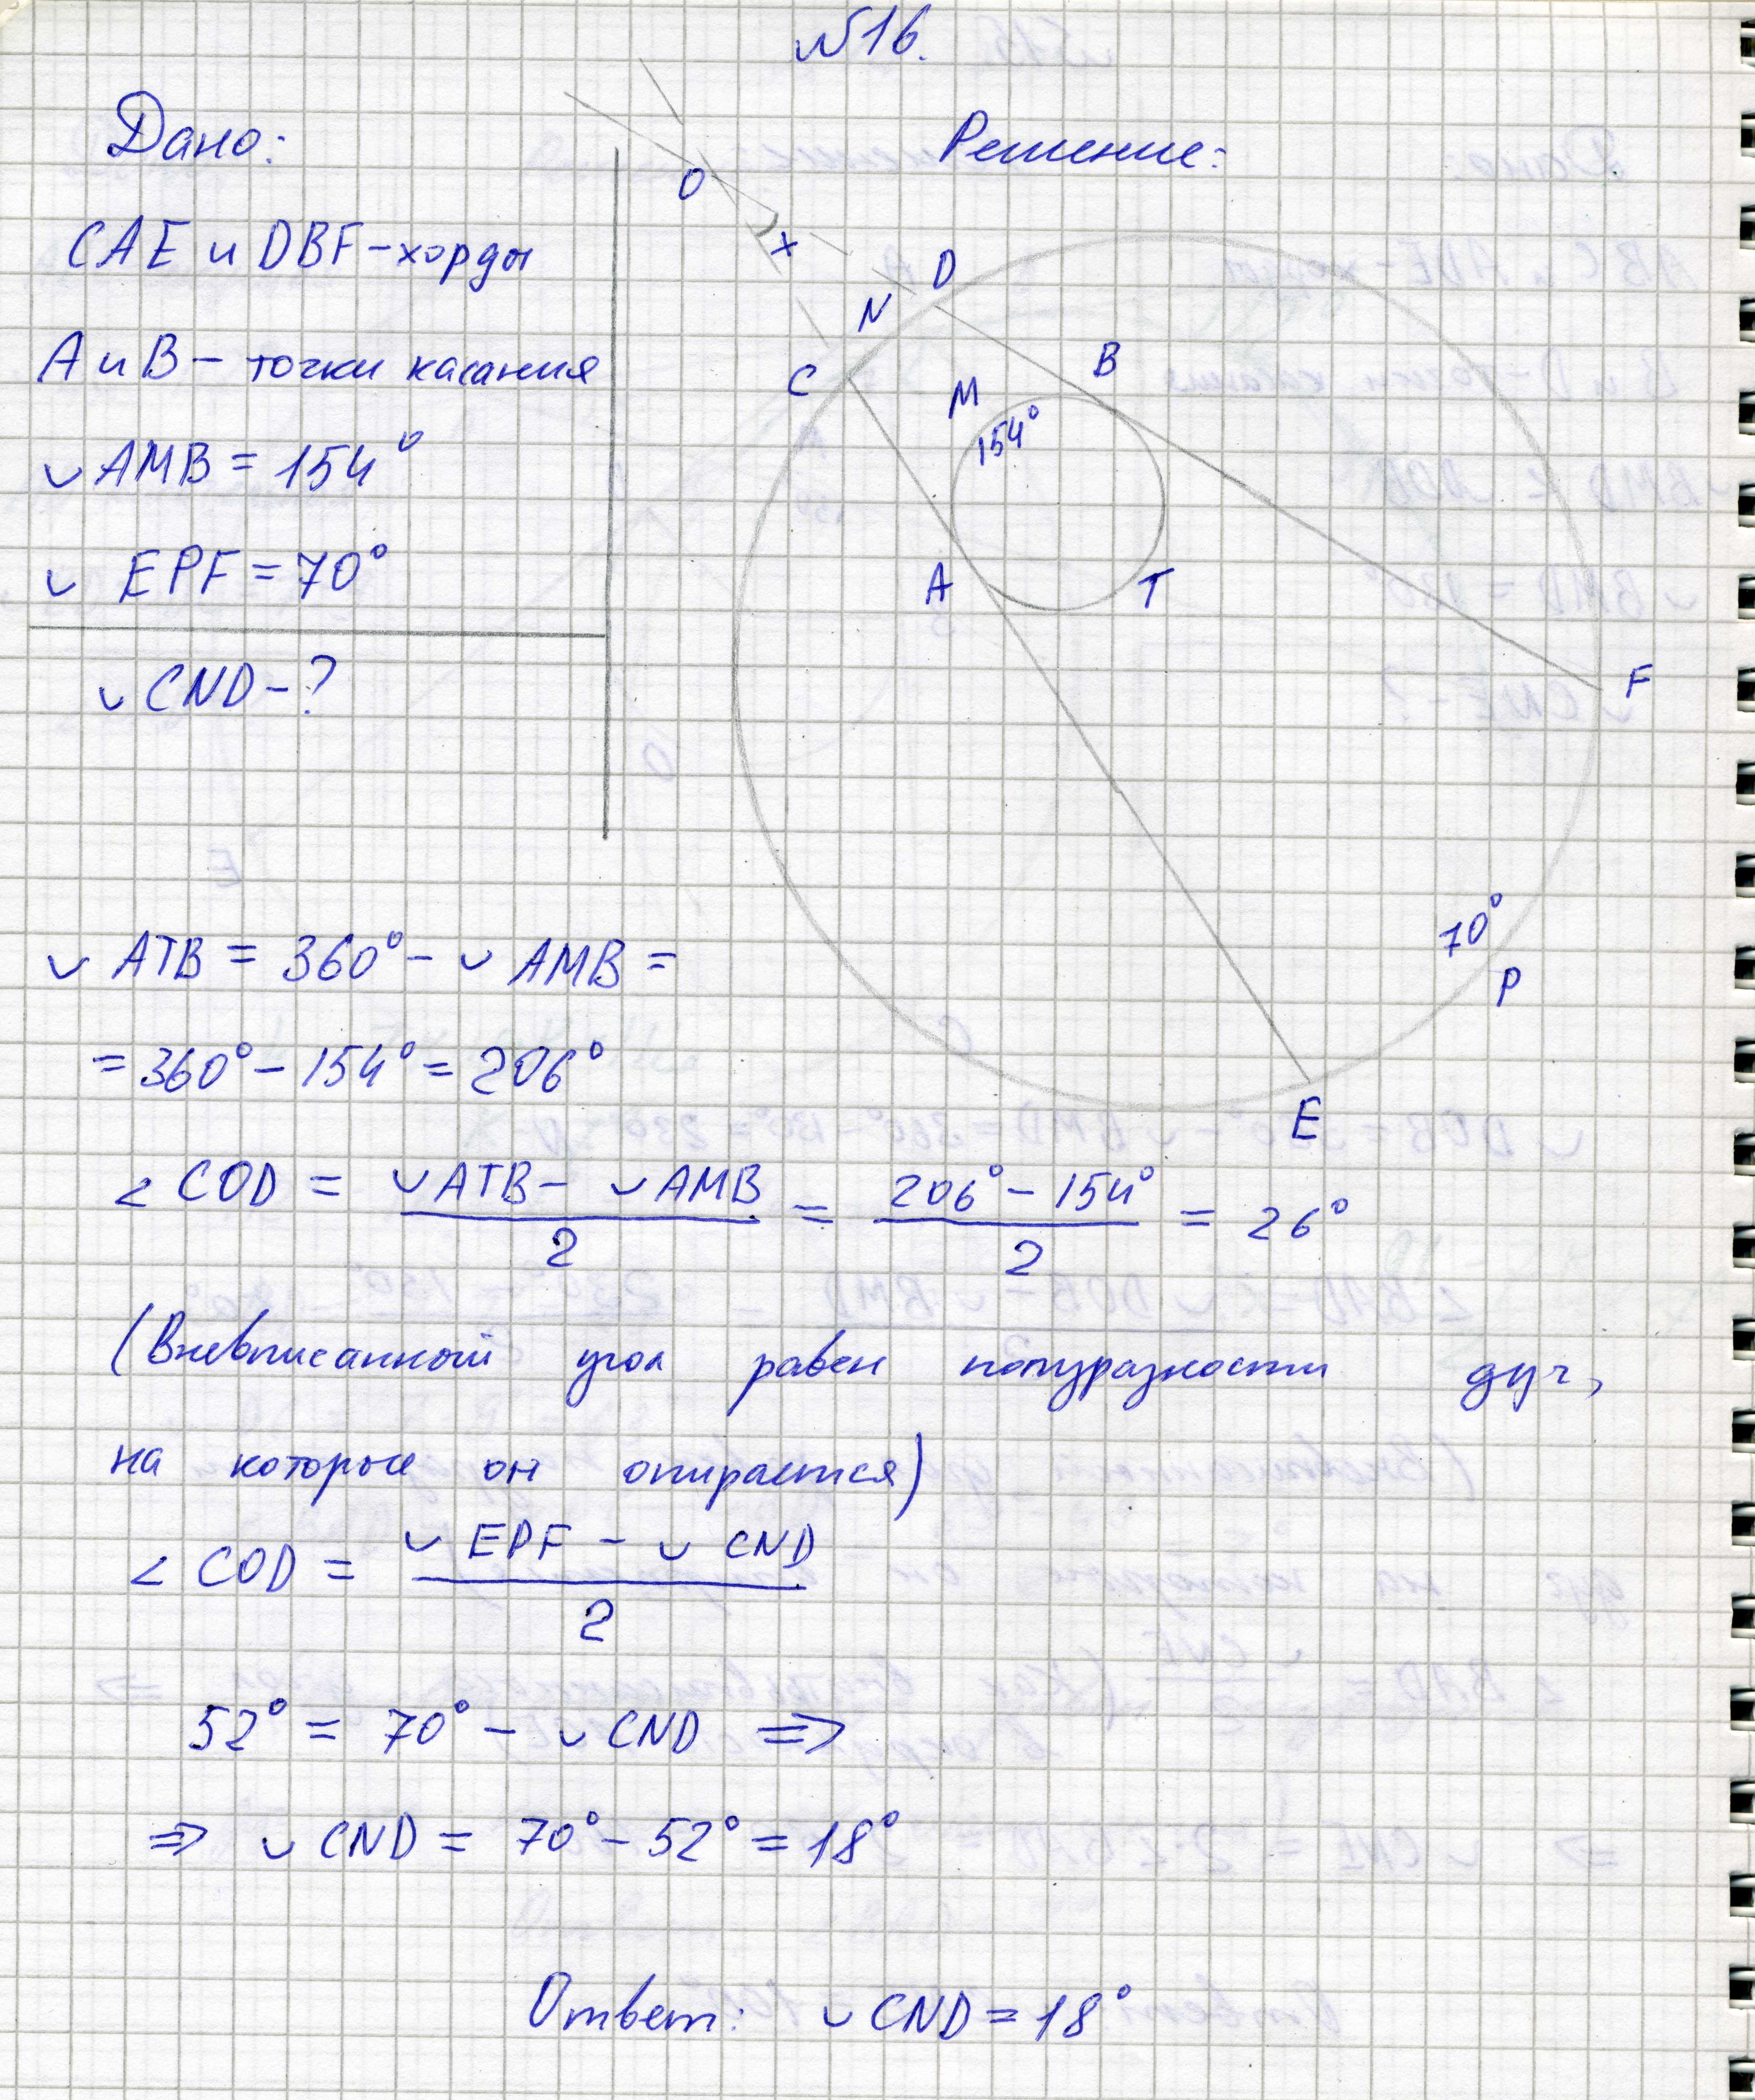 №16.
Дано:
CAE и DBF – хорды
A и B – точки касания
◡ AMB = 154°
◡ EPF = 70°
◡ CND – ?
Решение:
O
x
D
N
C
B
M
154°
A
T
F
70°
P
E
◡ ATB = 360° – ◡ AMB =
= 360° – 154° = 206°
∠ COD = (◡ ATB – ◡ AMB) / 2 = (206° – 154°) / 2 = 26°
(Вневписанный угол равен полуразности дуг,
на которые он опирается)
∠ COD = (◡ EPF – ◡ CND) / 2
52° = 70° – ◡ CND ⇒
⇒ ◡ CND = 70° – 52° = 18°
Ответ: ◡ CND = 18°